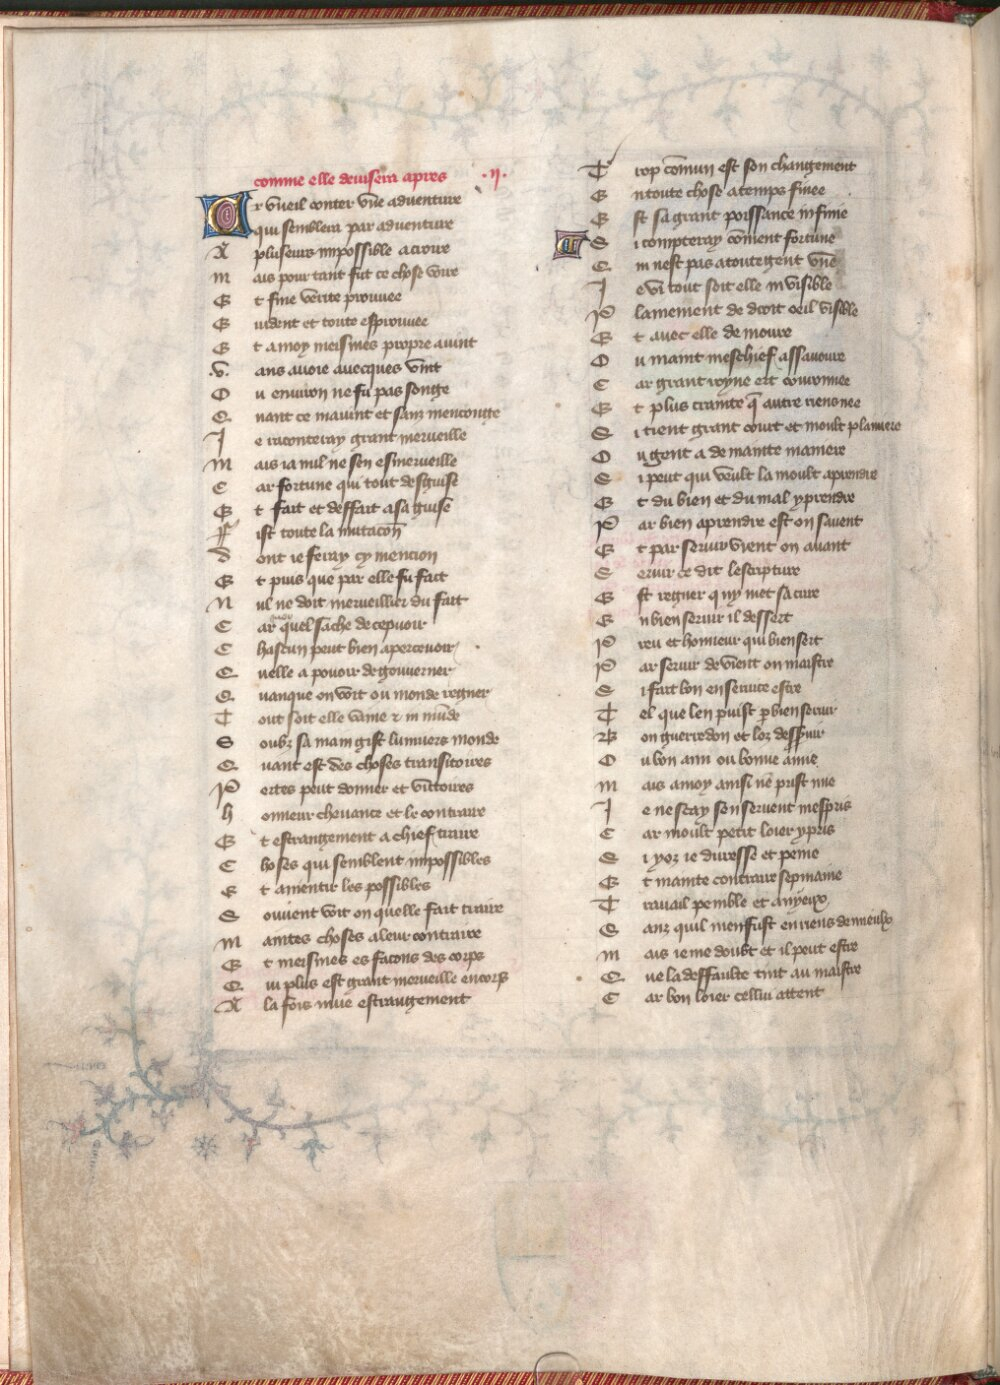 comme elle devisera apres .ii.
Or vueil conter une adventure
qui semblera par adventure
A pluseurs impossible a croire
Mais pour tant fut ce chose voire
Et fine verite prouvee
Evident et toute esprouvee
Et a moy meismes propre avint
.V. ans avoie avecques vint
Ou environ ne fu pas songe
Quant ce mavint et sanz menconge
Je raconteray grant merveille
Mais ia nul ne sen esmerveille
Car fortune qui tout desguise
Et fait et deffait a sa guise
Fist toute la mutacon
Dont ie feray cy mencion
Et puis que par elle fu fait
Nul ne doit merveillier du fait
Car quel sache decepvoir
Chascun peut bien apercevoir
Quelle a povoir de gouverner
Quanque on voit ou monde regner
Tout soit elle vaine et in munde
Soubz sa main gist lunivers monde
Quant est des choses transitoires
Pertes peut donner et victoires
Honneur chevance et le contraire
Et estrangement a chief traire
Choses qui semblent impossibles
Et amentir les possibles
Souvent voit on quelle fait traire
Maintes choses a leur contraire
Et meismes es facons des corps
Qui plus est grant merveille encors
A la fois mue estrangement
Trop comun est son changement
En toute chose a temps finee
Est sa grant poissance infinie
Si compteray coment fortune
Qui nest pas a toute gent une
Je vi tout soit elle invisible
Plainement de droit oeil visible
Et avec elle demoure
Ou maint meschief assavoure
Car grant royne ert couronnee
Et plus crainte q autre riens nee
Si tient grant court et moult planiere
Ou gent a de mainte maniere
Si peut qui veult la moult aprendre
Et du bien et du mal y prendre
Par bien aprendre est on savent
Et par servir vient on avant
Servir ce dit lescripture
Est regner q ny met sa cure
En bien servir il dessert
Preu et honneur qui bien sert
Par servir devient on maistre
Si fait bon en service estre
Tel que len puist p bien servir
Bon guerredon et loz desservir
Ou bon ann ou bonne annee
Mais a moy ainsi nen prist mie
Je ne scay se nservent mespris
Car moult petit loier y pris
Si y oz ie duresse et peine
Et mainte contraire sepmaine
Travail penible et anyeux
Sanz quil men fust en riens de mieulx
Mais ie me doubt et il peut estre
Que la deffaulte tint au maistre
Car bon loier cellui attent